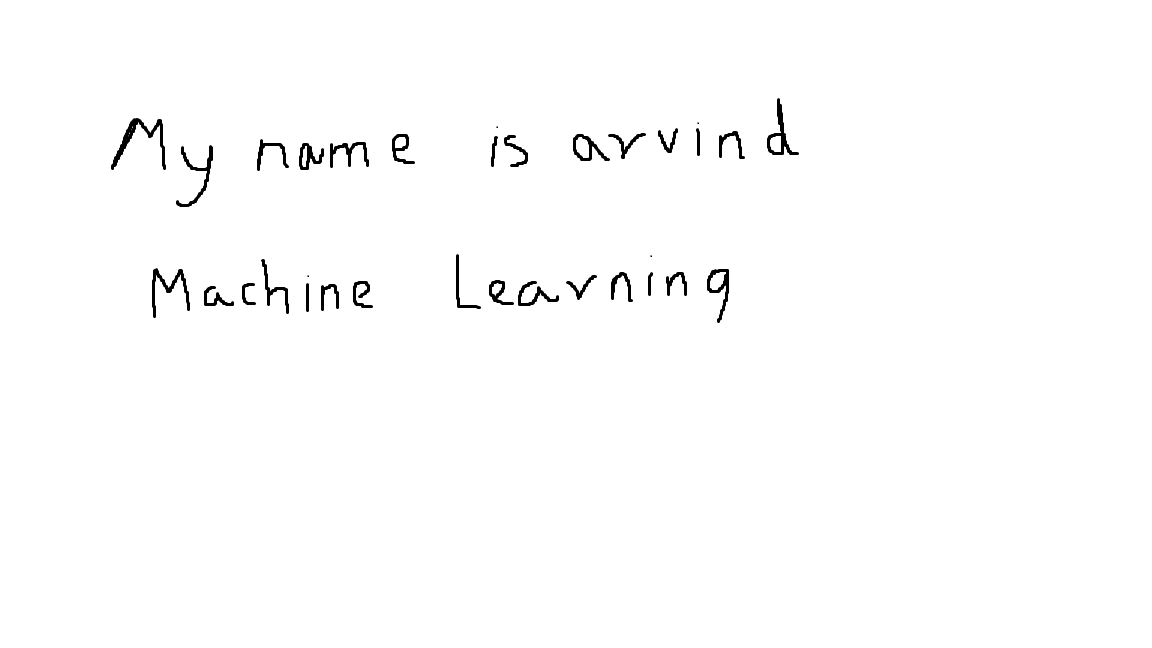 My name is arvind
Machine Learning